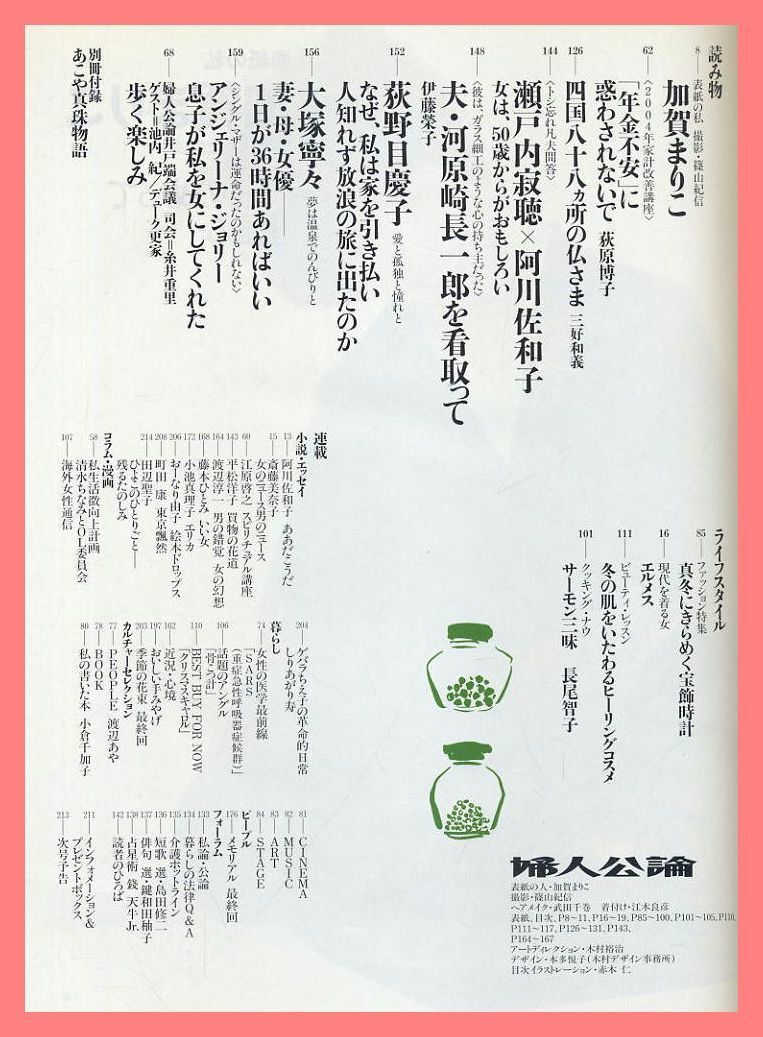 読み物
8─表紙の私 撮影・篠山紀信
加賀まりこ
62─〈2004年家計改善講座〉
「年金不安」に
惑わされないで 荻原博子
126─四国八十八ヵ所の仏さま 三好和義
144─〈トシ忘れ凡夫問答〉
瀬戸内寂聴×阿川佐和子
女は、50歳からがおもしろい
148─〈彼は、ガラス細工のような心の持ち主だった〉
夫・河原崎長一郎を看取って
伊藤榮子
152─荻野目慶子 愛と孤独と憧れと
なぜ、私は家を引き払い
人知れず放浪の旅に出たのか
156─大塚寧々 夢は温泉でのんびりと
妻・母・女優──
1日が36時間あればいい
159─〈シングル・マザーは運命だったのかもしれない〉
アンジェリーナ・ジョリー
息子が私を女にしてくれた
68─婦人公論井戸端会議 司会=糸井重里
ゲスト=池内 紀/デューク更家
歩く楽しみ
別冊付録
あこや真珠物語
ライフスタイル
85─ファッション特集
真冬にきらめく宝飾時計
16─現代を着る女
エルメス
111─ビューティ・レッスン
冬の肌をいたわるヒーリングコスメ
101─クッキング・ナウ
サーモン三昧 長尾智子
連載
小説・エッセイ
13─阿川佐和子 ああだこうだ
15─斎藤美奈子
女のニュース男のニュース
60─江原啓之 スピリチュアル講座
143─平松洋子 買物の花道
164─渡辺淳一 男の錯覚 女の幻想
168─藤本ひとみ いい女
172─小池真理子 エリカ
206─おーなり由子 絵本ドロップス
208─町田 康 東京飄然
214─田辺聖子
ひよこのひとりごと──
残るたのしみ
コラム・漫画
58─私生活微向上計画
清水ちなみとOI委員会
107─海外女性通信
204─ゲバラちえ子の革命的日常
しりあがり寿
暮らし
74─女性の医学最前線
「SARS
(重症急性呼吸器症候群)」
106─話題のアングル
「骨こつ計」
110─BEST BUY FOR NOW
「クリスマスキャロル」
162─近況・心境
197─おいしい手みやげ
203─季節の花束 最終回
カルチャーセレクション
77─PEOPLE 渡辺あや
78─BOOK
80─私の書いた本 小倉千加子
81─CINEMA
82─MUSIC
83─ART
84─STAGE
ピープル
176─メモリアル 最終回
フォーラム
133─私論・公論
134─暮らしの法律Q&A
135─介護ホットライン
136─短歌 選・島田修二
137─俳句 選・鍵和田秞子
138─占星術 錢 天牛Jr.
142─読者のひろば
211─インフォメーション&
プレゼントボックス
213─次号予告
婦人公論
表紙の人・加賀まりこ
撮影・篠山紀信
ヘアメイク・武田千巻 着付け・江木良彦
表紙、目次、P8〜11、P16〜19、P85〜100、P101〜105、P110、
P111〜117、P126〜131、P143、
P164〜167
アートディレクション・木村裕治
デザイン・本多悦子(木村デザイン事務所)
目次イラストレーション・赤木 仁